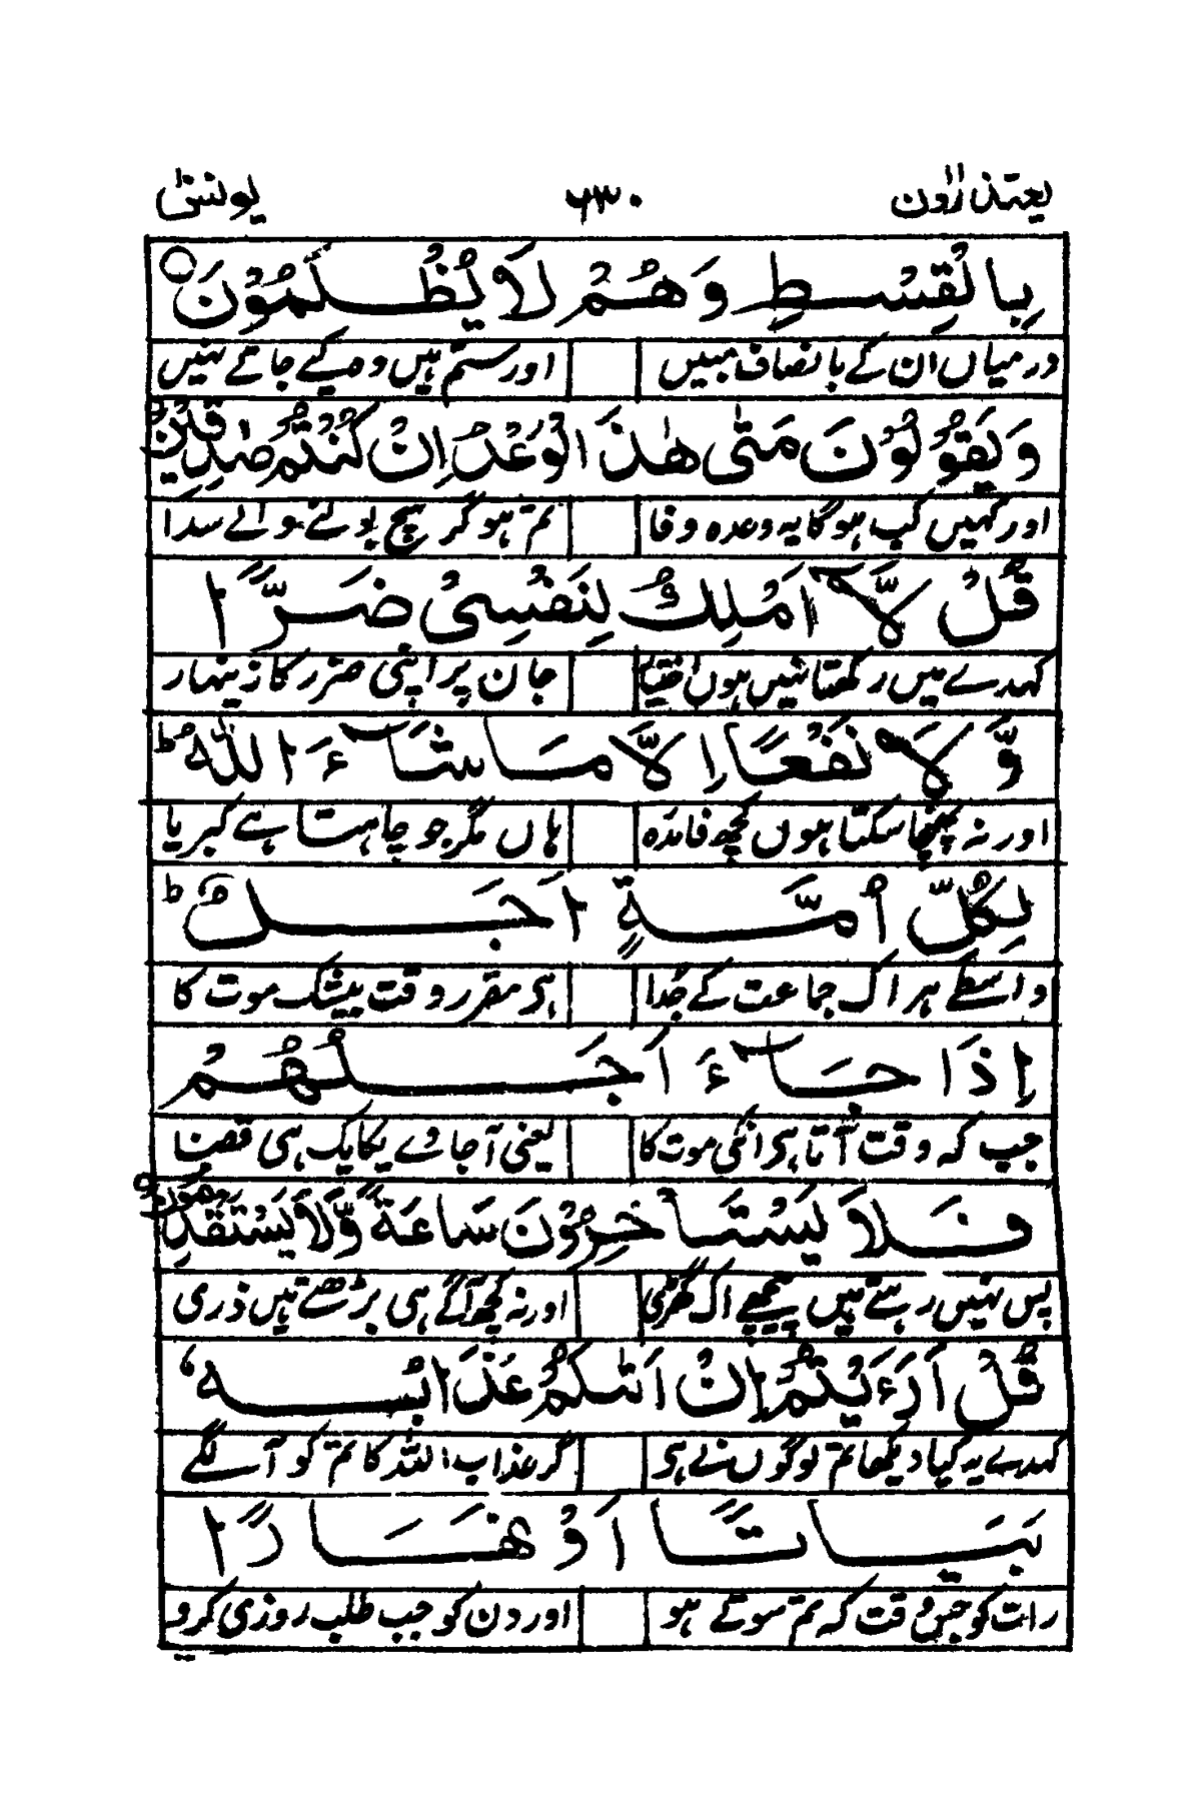 یعتذرون ۶۳۰ یونس
بِالْقِسْطِ وَهُمْ لَا یُظْلَمُوْنَ ○
درمیاں ان کے بانصاف مبیں اور ستم ہیں وہ کیے جاتے نہیں
وَیَقُوْلُوْنَ مَتٰی هٰذَا الْوَعْدُ اِنْ کُنْتُمْ صٰدِقِیْنَ
اور کہیں کب ہوگا یہ وعدہ وفا تم ہو گر سچ بولنے والے سدا
قُلْ لَّاۤ اَمْلِكُ لِنَفْسِیْ ضَرًّا
کہدے میں رکھتا نہیں ہوں اختیار جان پر اپنی ضرر کا زینہار
وَّ لَا نَفْعًا اِلَّا مَا شَآءَ اللّٰهُ ؕ
اور نہ پہنچا سکتا ہوں کچھ فائدہ ہاں مگر جو چاہتا ہے کبریا
لِكُلِّ اُمَّةٍ اَجَلٌ ؕ
واسطے ہر اک جماعت کے جُدا ہی مقرر وقت بیشک موت کا
اِذَا جَآءَ اَجَلُهُمْ
جب کہ وقت آتا ہی انکی موت کا یعنی آجاوے یکایک ہی قضا
فَلَا یَسْتَاْخِرُوْنَ سَاعَةً وَّلَا یَسْتَقْدِمُوْنَ
پس نہیں رہتے ہیں پیچھے اک گھڑی اور نہ کچھ آگے ہی بڑھتے ہیں ذری
قُلْ اَرَءَیْتُمْ اِنْ اَتٰىكُمْ عَذَابُهٗ
کہدے یہ کیا دیکھا تم لوگوں نے ہی گر عذاب اللہ کا تم کو آ لگے
بَیَاتًا اَوْ نَهَارًا
رات کو جس وقت کہ تم سوتے ہو اور دن کو جب طلب روزی کرو